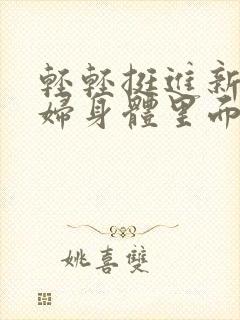 輕輕挺進新
婦身體里而
姚喜雙